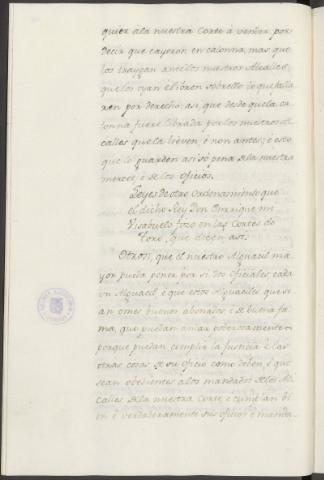 quier à la nuestra Corte à vender por
decir que cayeron en calonna, mas que
los traygan ante los nuestros Alcalles
que los oyan é libren sobrello lo que falla
ren por derecho: asi, que desde que la ca
lonna fuere librada por los nuestros Al
calles que la lieven é non antes; é esto
que lo guarden asi só pena de la nuestra
merced, é de los Oficios.
Leyes de otro Ordenamiento que
el dicho Rey Don Enrrique mi
Visabuelo fizo en las Cortes de
Toro, que dicen asi.
Otrosi, que el nuestro Alguacil ma
yor pueda poner por si dos Oficiales cada
un Alguacil, é que estos Alguaciles que si
an omes buenos abonados é de buena fa
ma, que puedan andar poderosamente
porque puedan cumplir la Justicia é las
otras cosas de su Oficio como deben, é que
sean obedientes à los mandados de los Al
calles de la nuestra Corte é cumplan bi
en é verdaderamente sus oficios é manda